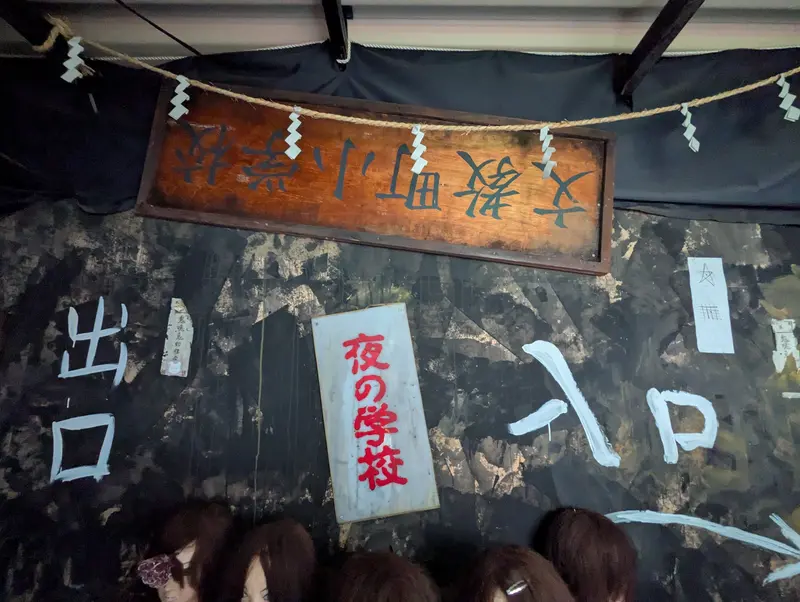 文教町小学校
出口
夜の学校
入口